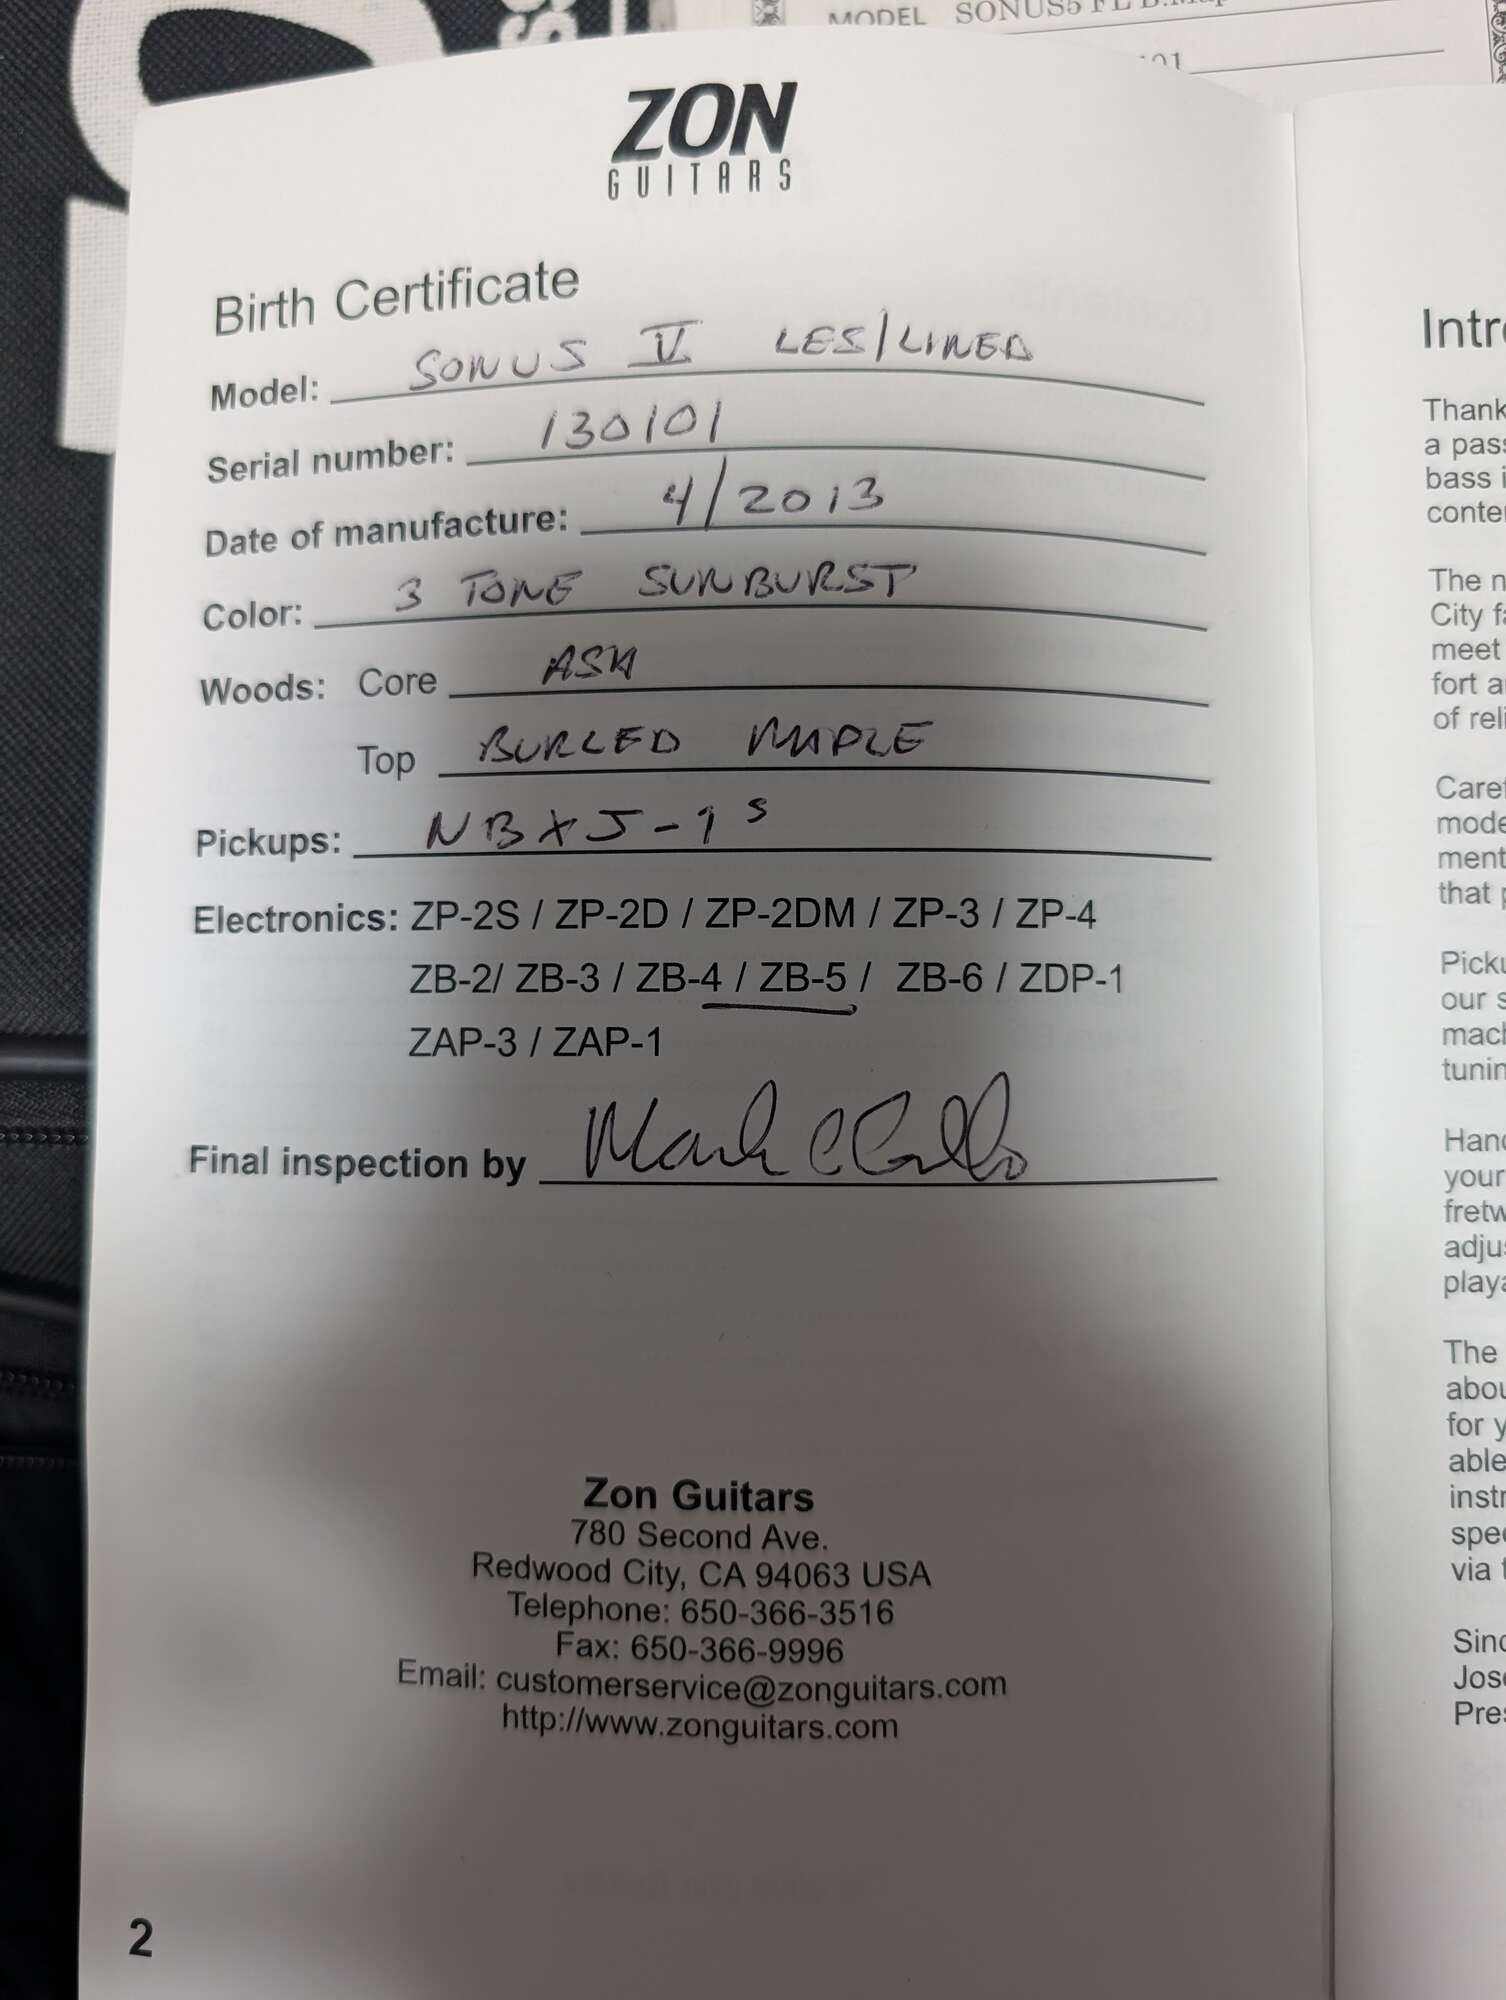 MODEL SONUS5 FL B.Map
ZON
GUITARS
Birth Certificate
Model: SONUS V LES/LINED
Serial number: 130101
Date of manufacture: 4/2013
Color: 3 TONE SUNBURST
Woods: Core ASH
Top BURLED MAPLE
Pickups: NBXJ-1s
Electronics: ZP-2S / ZP-2D / ZP-2DM / ZP-3 / ZP-4
ZB-2/ ZB-3 / ZB-4 / ZB-5 / ZB-6 / ZDP-1
ZAP-3 / ZAP-1
Final inspection by
Zon Guitars
780 Second Ave.
Redwood City, CA 94063 USA
Telephone: 650-366-3516
Fax: 650-366-9996
Email: customerservice@zonguitars.com
http://www.zonguitars.com
2
Intr
Thank
a pass
bass i
conte
The n
City fa
meet
fort a
of reli
Caref
mode
ment
that p
Picku
our s
mach
tunin
Hand
your
fretw
adjus
playa
The
abou
for y
able
instr
spec
via t
Sinc
Jose
Pres